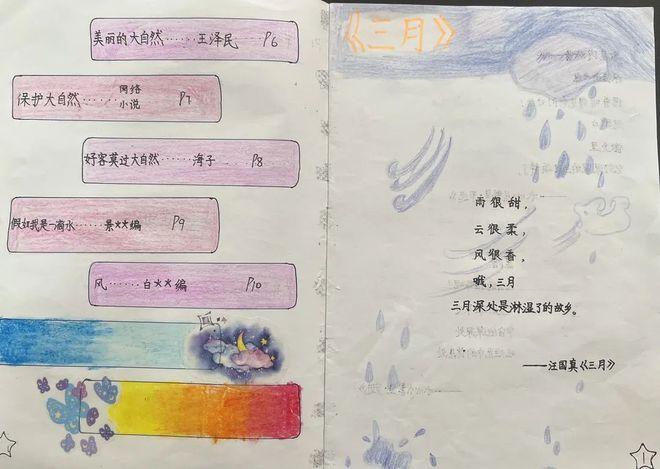 美丽的大自然……王泽民 P6
保护大自然……网络小说 P7
好客莫过大自然……海子 P8
假如我是一滴水……景**编 P9
风……白**编 P10
《三月》
雨很甜，
云很柔，
风很香，
哦，三月
三月深处是淋湿了的故乡。
——汪国真《三月》
1